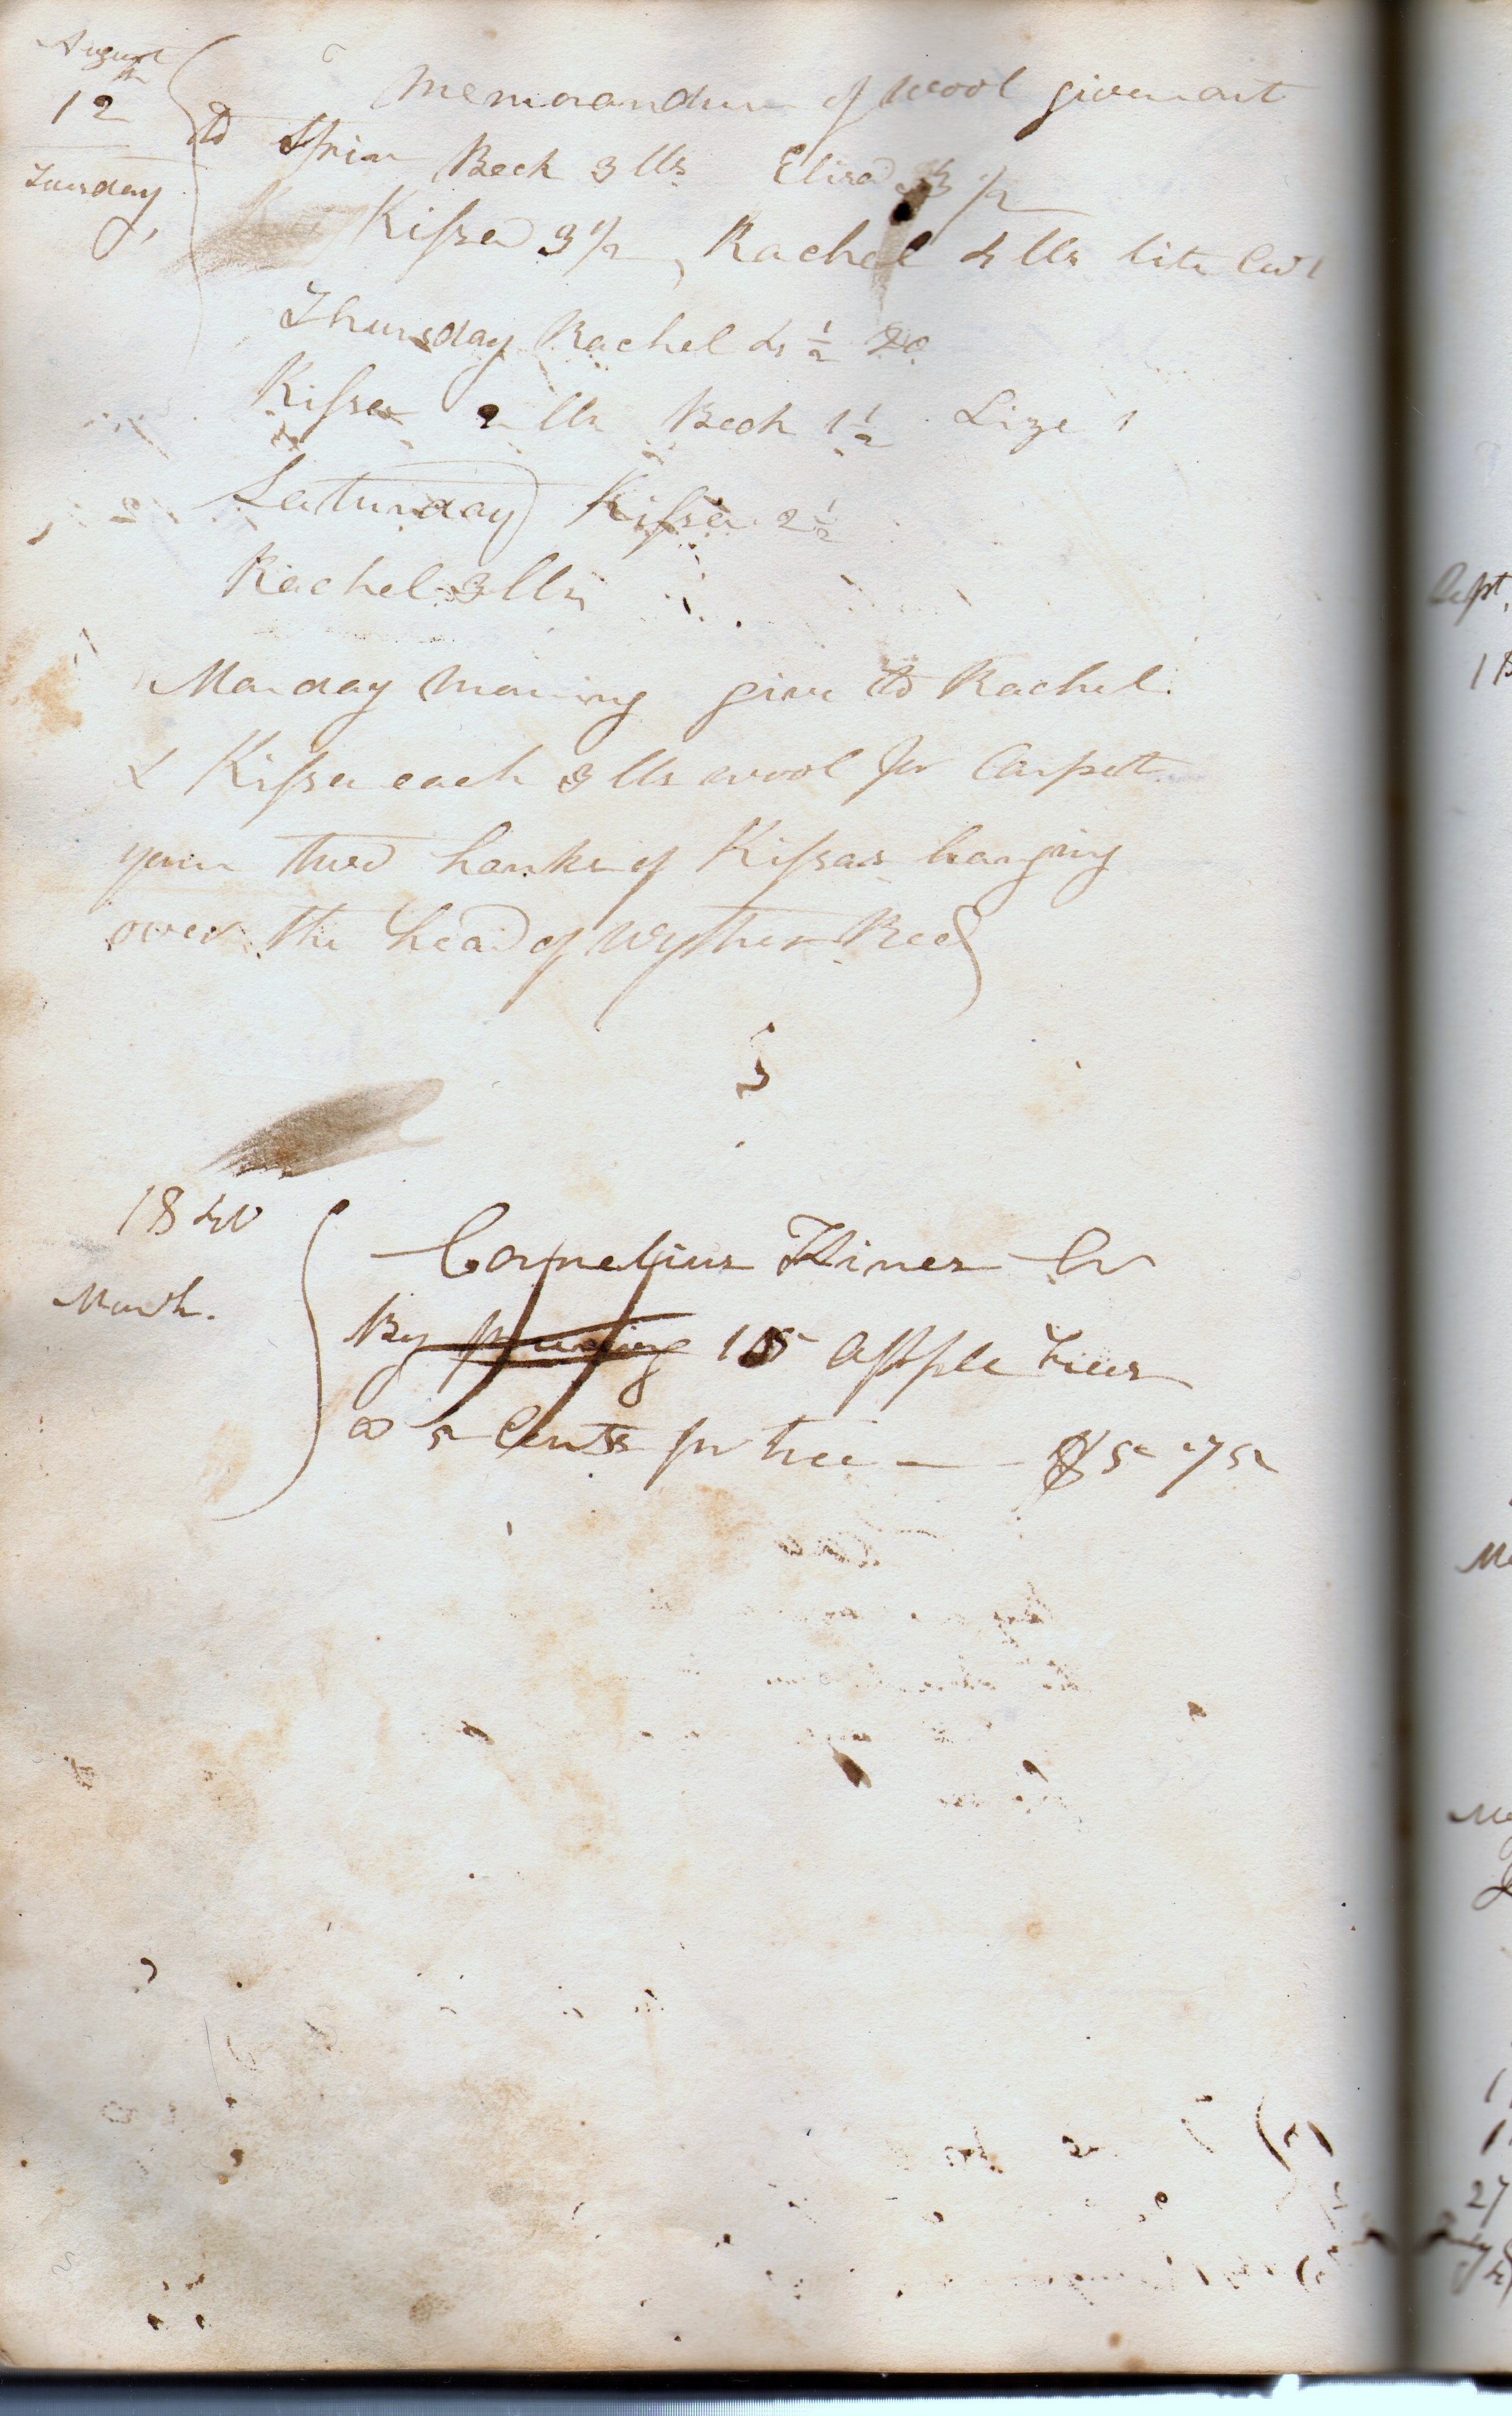 August
12th
Tuesday,
Memorandum of Wool given out
to Spin Beck 3 lbs Eliza 3 1/2
Kissa 3 1/2, Rachel 4 lbs
Thursday Rachel 4 1/2 Do
Kissa 2 lbs Beck 1 1/2 Lize 1
Saturday Kissa 2 1/2
Rachel 3 lbs
Monday Morning give to Rachel
& Kissa each 3 lbs wool for Carpet
yarn two hanks of Kissas hanging
over the head of Wythes Bed
1840
March.
Cornelius Hines Cr
By pruning 115 Apple Trees
@ 5 Cents pr tree — $5 75
Sept,
27